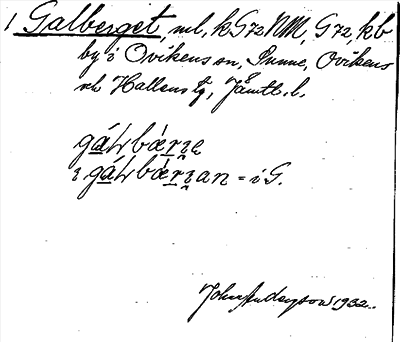 1 Galberget, ml, kG72NM, G72, kb
by i Ovikens sn, Sunne, Ovikens
och Hallens tg, Jämtl. l.
gáƚbæ̀r̠i̯e
i gáƚbæ̀r̠i̯an = i G.
John Anderson 1932.